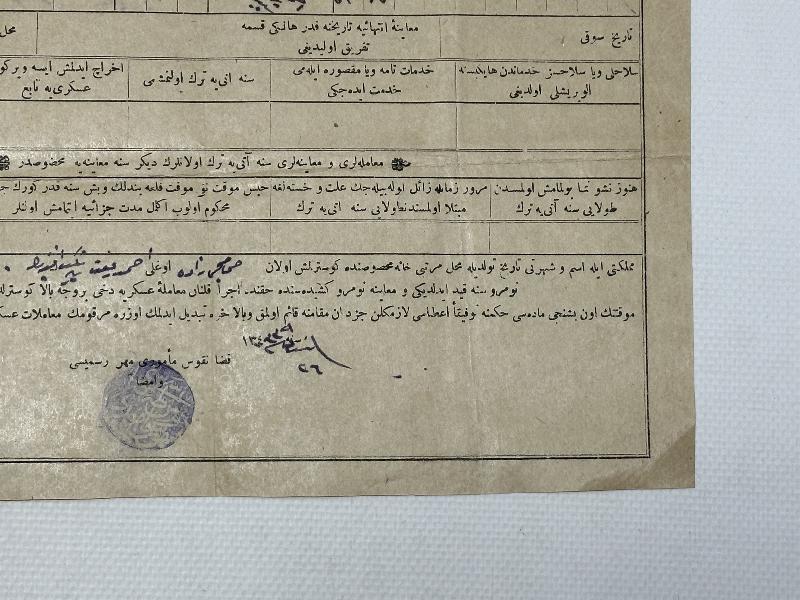 تاریخ سوقی
معاینهٔ انتهائیه تاریخنه قدر هانکی قسمه
تفریق اولیدیغی
محل
سلاحلی ویا سلاحسز خدمتدن هانکیسنه
الویریشلی اولدیغی
خدمات تامه ویا مقصوره ایله می
خدمت ایده جکی
سنه آتی یه ترك اولنمشمی
اخراج ایدلمش ایسه ویرکو
عسکری یه تابع
معامله لری و معاینه لری سنه آتی یه ترك اولانلرك دیکر سنه معاینه یه مخصوصدر
هنوز نشو نما بولمامش اولمسندن
طولایی سنه آتی یه ترك
مرور زمانله زائل اوله بیله جك علت و خسته لغه
مبتلا اولمسندن طولایی سنه آتی یه ترك
حبس موقت نفی موقت قلعه بندلك وبش سنه قدر کورك
محکوم اولوب اکمال مدت جزائیه ایتمامش اولنلر
مملکتی ایله اسم و شهرتی تاریخ تولدیله محل مرتبی خانهٔ مخصوصنده کوسترلمش اولان زاده اوغلی احمد
نومرو سنه قید ایدلدیکی و معاینه نومرو کشیده سنده حقنده اجرا قلنان معاملهٔ عسکریه دخی بروجه بالا کوسترل
موقتنك اون بشنجی ماده سی حکمنه توفیقاً اعطاسی لازمکلن جزدان مقامنه قائم اولمق وبالاخره تبدیل ایدلمك اوزره مرقومك معاملات عسک
٢٦
قضا نفوس مأموری مهر رسمیسی
وامضا